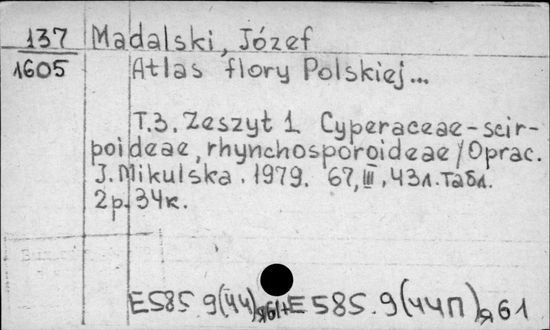 137 Madalski, Józef
1605 Atlas flory Polskiej...
T.3. Zeszyt 1 Cyperaceae-scir-
poideae, rhynchosporoideae / Oprac.
J. Mikulska. 1979. 67, III, 43л. табл.
2р. 34к.
Е585.9(44)я61+Е585.9(44П)я61